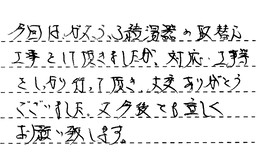 今回は、ガスふろ給湯器の取替え
工事をして頂きましたが、対応・工事等
をしっかり行って頂き、大変ありがとう
ございました。又今後共宜しく
お願い致します。